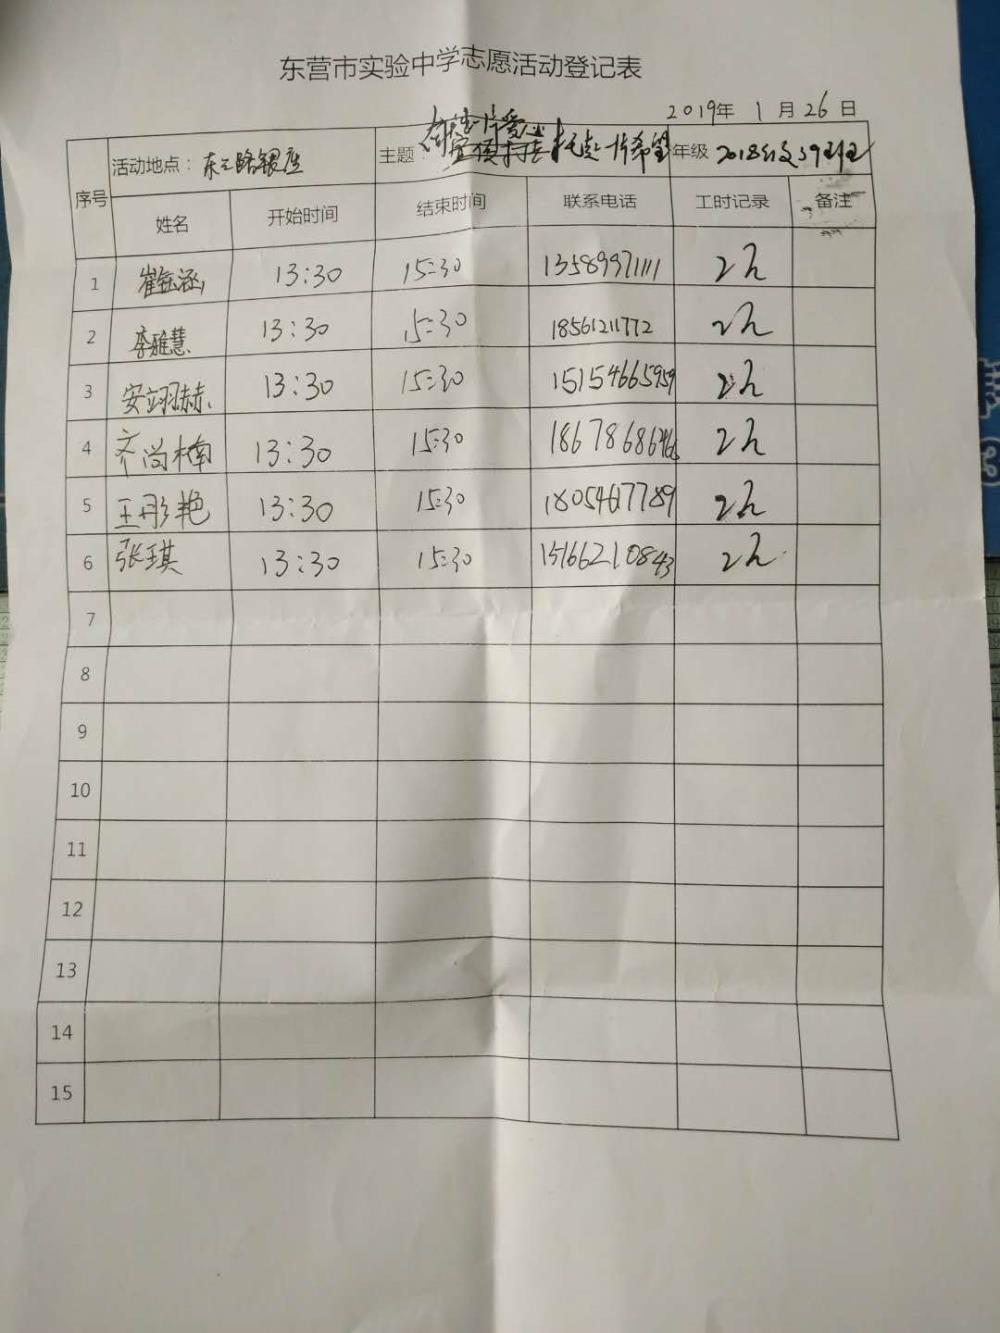 东营市实验中学志愿活动登记表
2019年 1月26日
序号 活动地点：东三路银座 主题： 托起一片希望 年级 2018级59班
姓名 开始时间 结束时间 联系电话 工时记录 备注
1 崔钰涵 13:30 15:30 13589971111 2h
2 李雅慧 13:30 15:30 18561211772 2h
3 安翊赫 13:30 15:30 15154665959 2h
4 齐尚楠 13:30 15:30 2h
5 王彤艳 13:30 15:30 18054617789 2h
6 张琪 13:30 15:30 15166210843 2h
7
8
9
10
11
12
13
14
15